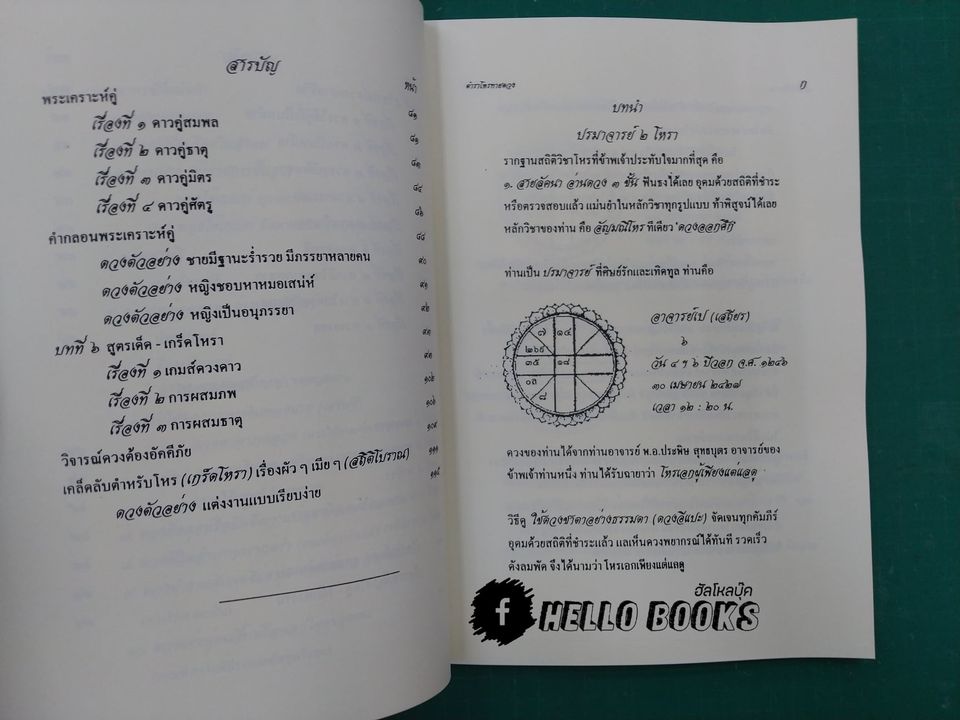 สารบัญ
หน้า
พระเคราะห์คู่ ๘๑
เรื่องที่ ๑ ดาวคู่สมพล ๘๑
เรื่องที่ ๒ ดาวคู่ธาตุ
เรื่องที่ ๓ ดาวคู่มิตร ๘๔
เรื่องที่ ๔ ดาวคู่ศัตรู ๘๖
คำกลอนพระเคราะห์คู่ ๘๘
ดวงตัวอย่าง ชายมีฐานะร่ำรวย มีภรรยาหลายคน ๙๐
ดวงตัวอย่าง หญิงชอบหาหมอเสน่ห์ ๙๑
ดวงตัวอย่าง หญิงเป็นอนุภรรยา ๙๒
บทที่ ๖ สูตรเด็ด - เกร็ดโหรา
เรื่องที่ ๑ เกมส์ดวงดาว
เรื่องที่ ๒ การผสมภพ
เรื่องที่ ๓ การผสมธาตุ
วิจารณ์ดวงต้องอัคคีภัย ๑๐๙
เคล็ดลับตำหรับโหร (เกร็ดโหรา) เรื่องผัว ๆ เมีย ๆ (สถิติโบราณ) ๑๑๑
ดวงตัวอย่าง แต่งงานแบบเรียบง่าย
ตำราโหรทายดวง ๅ
บทนำ
ปรมาจารย์ ๒ โหรา
รากฐานสถิติวิชาโหรที่ข้าพเจ้าประทับใจมากที่สุด คือ
๑. สายลัคนา อ่านดวง ๓ ชั้น ฟันธงได้เลย อุดมด้วยสถิติที่ชำระ
หรือตรวจสอบแล้ว แม่นยำในหลักวิชาทุกรูปแบบ ท้าพิสูจน์ได้เลย
หลักวิชาของท่าน คือ อัญมณีโหร ทีเดียว "ดวงออกศึก"
ท่านเป็น ปรมาจารย์ ที่ศิษย์รักและเทิดทูล ท่านคือ
๗ ๑๔
๒๖๕
๓๕ ๑๘
๐ล
๘
อาจารย์เป (เสถียร)
๖
วัน ๔ ฯ ๖ ปีวอก จ.ศ. ๑๒๔๖
๓๐ เมษายน ๒๔๒๗
เวลา ๑๒ : ๒๐ น.
ดวงของท่านได้จากท่านอาจารย์ พ.อ.ประพิษ สุทธบุตร อาจารย์ของ
ข้าพเจ้าท่านหนึ่ง ท่านได้รับฉายาว่า โหรเอกผู้เพียงแต่แลดู
วิธีดู ใช้ดวงชาตาอย่างธรรมดา (ดวงอีแปะ) จัดเจนทุกคัมภีร์
อุดมด้วยสถิติที่ชำระแล้ว แลเห็นดวงพยากรณ์ได้ทันที รวดเร็ว
ดังลมพัด จึงได้นามว่า โหรเอกเพียงแต่แลดู
ฮัลโหลบุ๊ค
f HELLO BOOKS